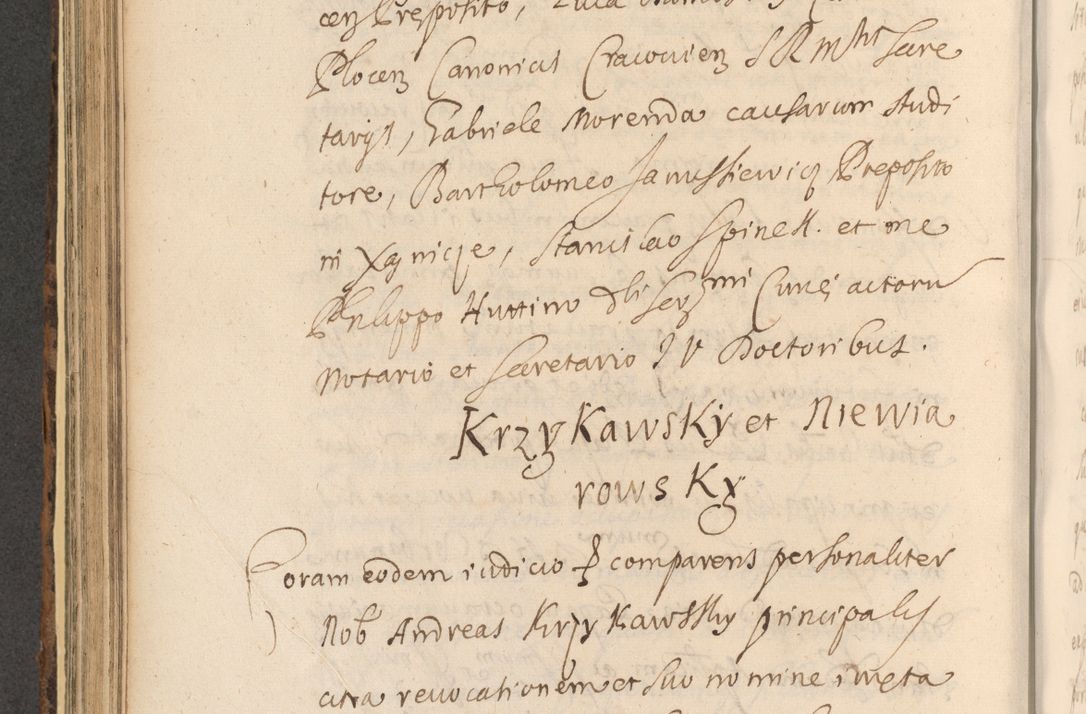 cen Preposito,
Plocen Canonicis Cracovien S R Mtis Secre
tarijs, Gabriele Morenda causarum Audi
tore, Bartholomeo Janussiewicz Preposito
in Xąnicze, Stanislao Spinell. et me
Philippo Huttino dli Serzmi Curię actoru
Notario et Secretario J V Doctoribus.
KrzyKawsKy et Niewia
rowsKy
Coram eodem iudicio comparens personaliter
Nob Andreas KrzyKawsKy principalis
citra revocationem et suo nomine iuncta